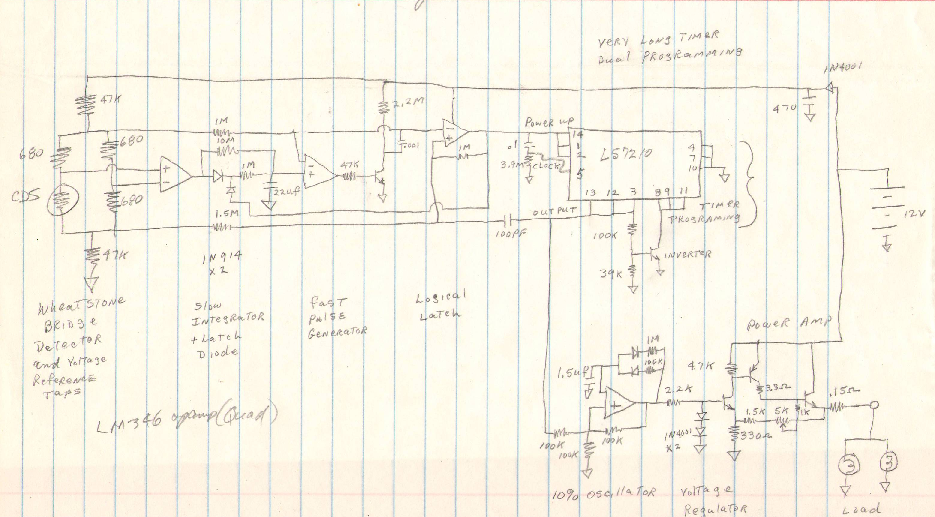 VERY LONG TIMER
Dual PROGRAMMING
1N4001
47K
2.2M
470
680
680
1M
10M
1M
Power up
.1
3.9M
CLOCK
14
1
2
5
LS7210
4
7
10
47K
1M
CDS
680
22uf
13
12
3
8
9
11
12V
1.5M
OUTPUT
100PF
TIMER
PROGRAMING
100K
47K
1N914
X2
INVERTER
39K
WHEATSTONE
BRIDGE
Detector
and Voltage
REFERENCE
TAPS
Slow
INTEGRATOR
+ Latch
Diode
fast
Pulse
GENERATOR
Logical
Latch
Power Amp
1M
100K
1.5uf
47K
3.3Ω
2.2K
.15Ω
1.5K
5K
1K
LM346 opamp (Quad)
100K
100K
100K
1N4001
X2
330Ω
10% Oscillator
Voltage
Regulator
Load